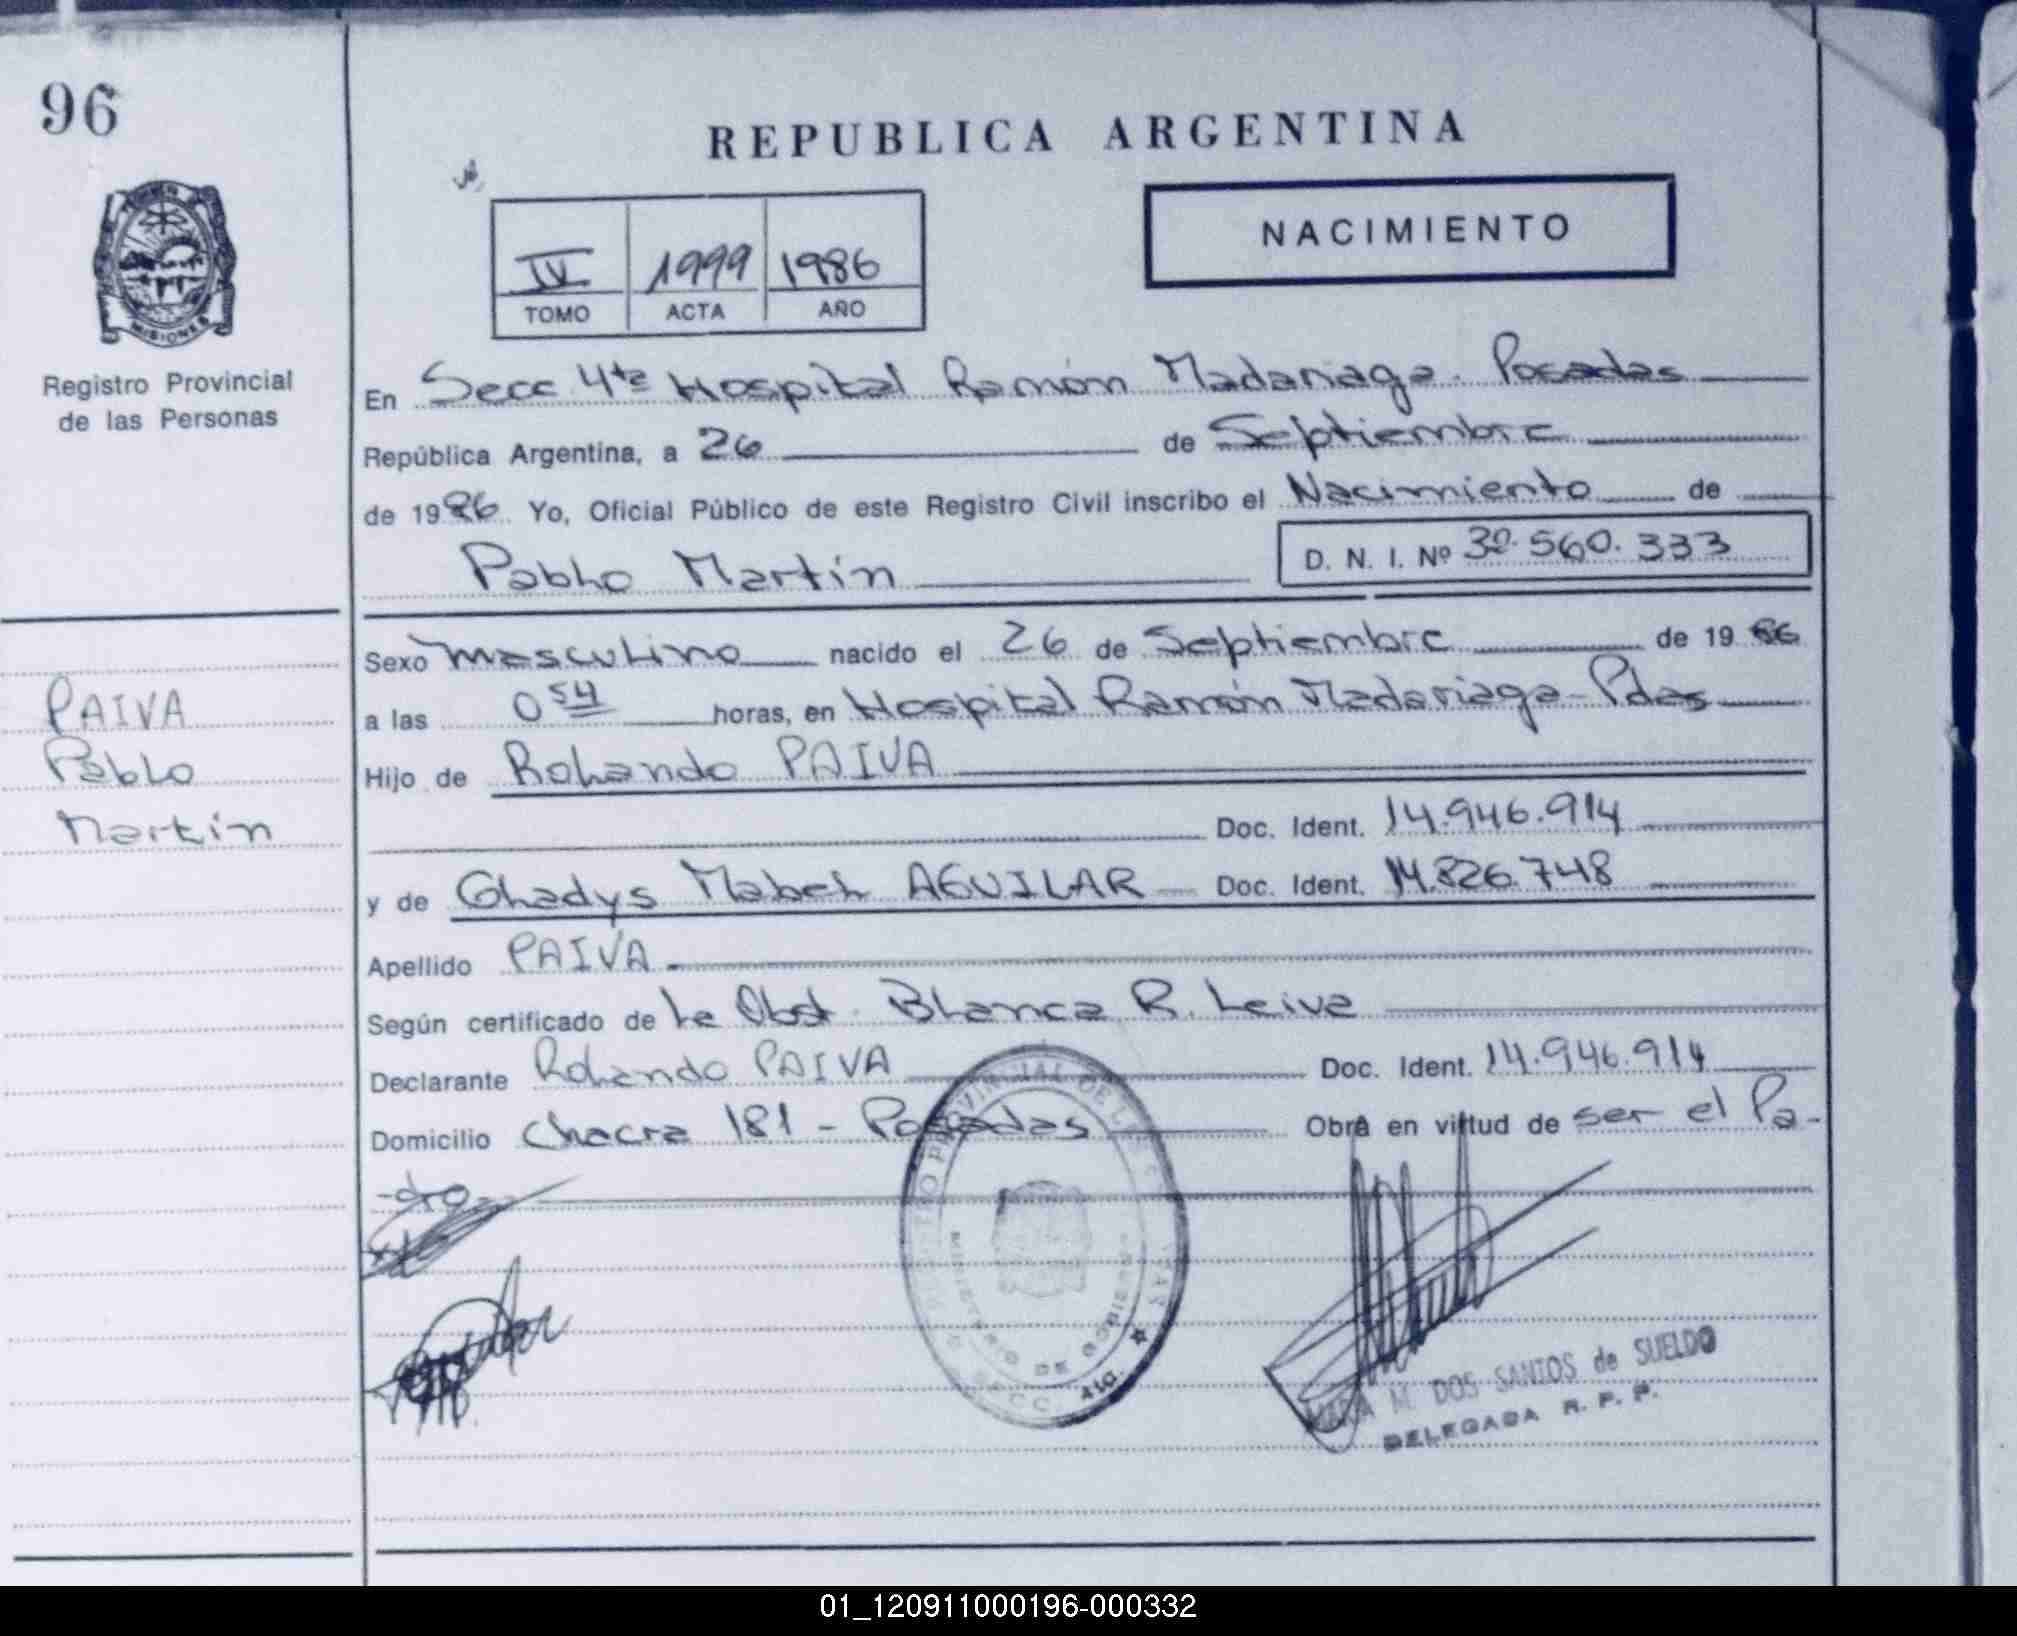 96
REPUBLICA ARGENTINA
NACIMIENTO
IV 1999 1986
TOMO ACTA AÑO
MISIONES
Registro Provincial
de las Personas
En Secc 4ta Hospital Ramón Madariaga - Posadas
República Argentina, a 26 de Septiembre
de 1986 Yo, Oficial Público de este Registro Civil inscribo el Nacimiento de
Pablo Martín D. N. I. Nº 32.560.333
Sexo masculino nacido el 26 de Septiembre de 1986
a las 0 54 horas, en Hospital Ramón Madariaga - Pdas
PAIVA
Pablo
Martín
Hijo de Rolando PAIVA
Doc. Ident. 14.946.914
y de Gladys Mabel AGUILAR Doc. Ident. 14.826.748
Apellido PAIVA
Según certificado de la Obst. Blanca R. Leiva
Declarante Rolando PAIVA Doc. Ident. 14.946.914
Domicilio Chacra 181 - Posadas Obra en virtud de ser el Pa-
-dre
MINISTERIO DE GOBIERNO
SECC. 4ta.
MARIA M. DOS SANTOS de SUELDO
DELEGADA R. P. P.
01_120911000196-000332